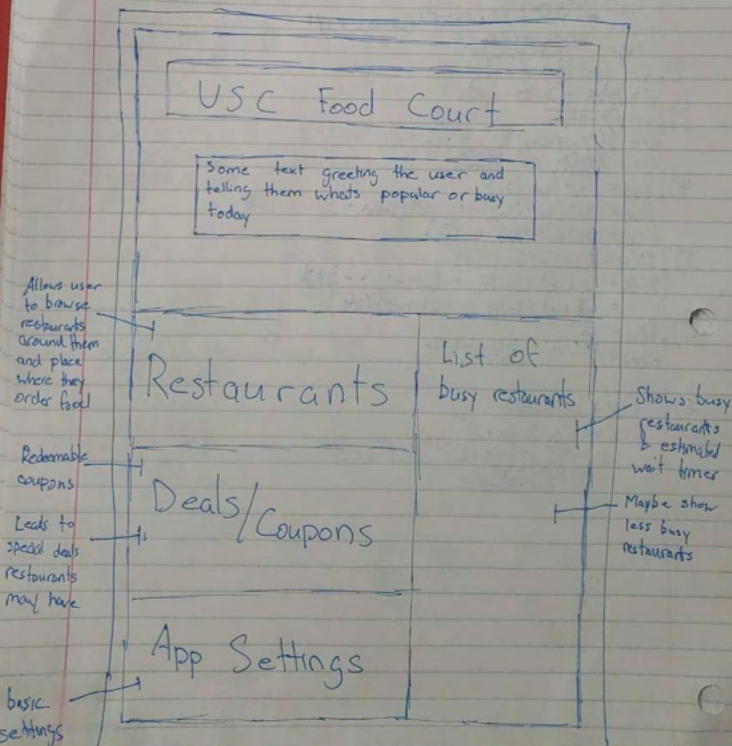 USC Food Court
Some text greeting the user and
telling them whats popular or busy
today
Allows user
to browse
restaurants
around them
and place
where they
order food
Restaurants
List of
busy restaurants
Shows busy
restaurants
& estimated
wait times
Maybe show
less busy
restaurants
Redeemable
coupons
Leads to
special deals
restaurants
may have
Deals/Coupons
App Settings
basic
settings